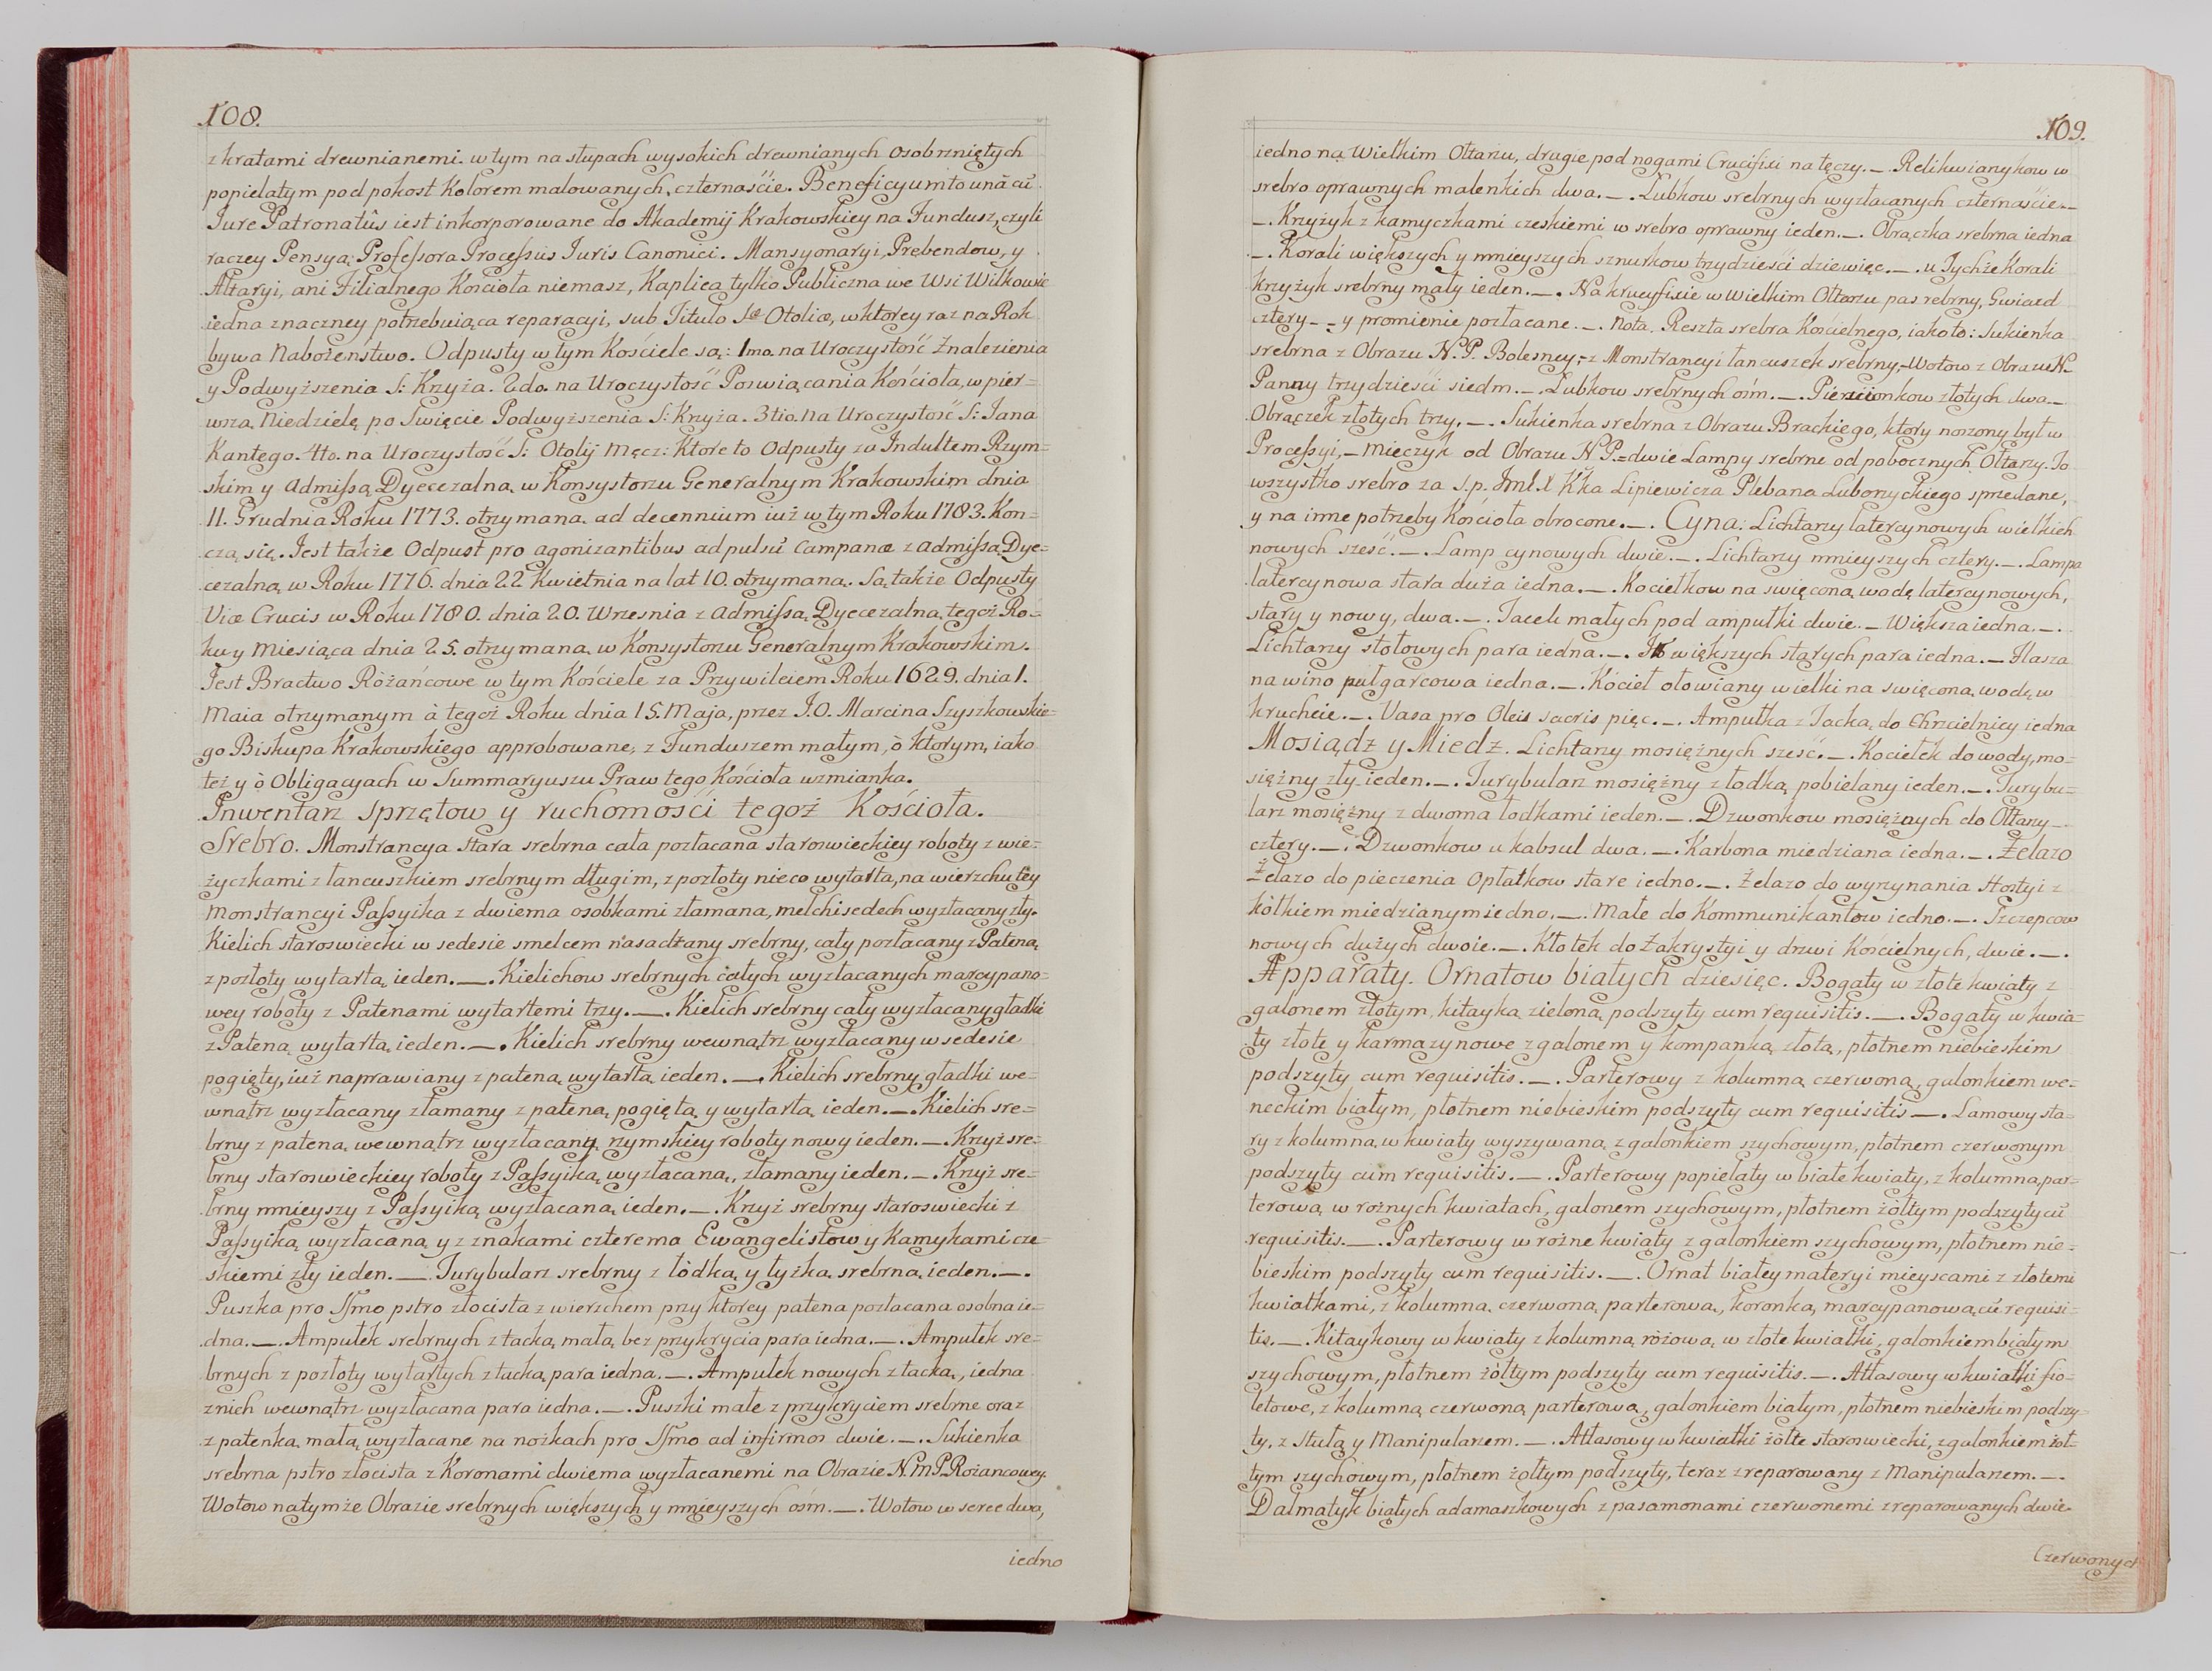 108.
z kratami drewnianemi. w tym na słupach wysokich drewnianych osobrzniętych
popielatym pod pokost Kolorem malowanych, czternaście. Beneficyum to unâ cũ
Jure Patronatûs iest inkorporowane do Akademij Krakowskiey na Fundusz, czyli
raczey Pensyą: Professora Processus Juris Canonici. Mansyonaryi, Prebendow, y
Altaryi, ani Filialnego Kościoła niemasz, Kaplica tylko Publiczna we Wsi Wilkowie
iedna znaczney potrzebuiąca reparacyi, sub Titulo S^æ Otoliæ, w ktorey raz na Rok
bywa Nabożenstwo. Odpusty w tym Kosciele są: 1mo. na Uroczystość Znalezienia
y Podwyższenia S: Krzyża. 2do. na Uroczystość Poswiącania Kościoła, w pier=
wszą Niedzielę po Swięcie Podwyższenia S: Krzyża. 3tio. na Uroczystość S: Jana
Kantego. 4to. na Uroczystość S: Otolij Męcz: Ktore to Odpusty za Indultem Rzym=
skim y Admissą Dyecezalną w Konsystorzu Generalnym Krakowskim dnia
11. Grudnia Roku 1773. otrzymaną ad decennium iuż w tym Roku 1783. Kon=
czą się. Jest także Odpust pro agonizantibus ad pulsũ Campanæ z admissą Dye=
cezalną w Roku 1776. dnia 22 Kwietnia na lat 10. otrzymaną. Są także Odpusty
Viæ Crucis w Roku 1780. dnia 20. Wrzesnia z Admissą Dyecezalną tegoż Ro=
ku y Miesiąca dnia 25. otrzymaną w Konsystorzu Generalnym Krakowskim.
Jest Bractwo Różańcowe w tym Kościele za Przywileiem Roku 1629. dnia 1.
Maia otrzymanym à tegoż Roku dnia 15. Maja, przez J.O. Marcina Szyszkowskie=
go Biskupa Krakowskiego approbowane; z Funduszem małym, ò ktorym, iako
też y ò Obligacyach w Summaryuszu Praw tego Kościoła wzmianka.
Inwentarz sprzętow y ruchomości tegoż Kościoła.
Srebro. Monstrancya stara srebrna cała pozłacana staroswieckiey roboty z wie=
życzkami z łancuszkiem srebrnym długim, z pozłoty nieco wytarta, na wierzchu tey
Monstrancyi Passyika z dwiema osobkami złamana, melchisedech wyzłacany zły.
Kielich staroswiecki w sedesie smelcem nasadzany srebrny, cały pozłacany z Pateną
z pozłoty wytartą ieden.—. Kielichow srebrnych całych wyzłacanych marcypano=
wey roboty z Patenami wytartemi trzy.—. Kielich srebrny cały wyzłacany gładki
z Pateną wytartą ieden.—. Kielich srebrny wewnątrz wyzłacany w sedesie
pogięty, iuż naprawiany z pateną wytartą ieden.—. Kielich srebrny gładki we=
wnątrz wyzłacany złamany z pateną pogiętą y wytartą ieden.—. Kielich sre=
brny z pateną wewnątrz wyzłacany rzymskiey roboty nowy ieden.—. Krzyż sre=
brny staroswieckiey roboty z Passyiką wyzłacaną, złamany ieden.—. Krzyż sre=
brny mnieyszy z Passyiką wyzłacaną ieden.—. Krzyż srebrny staroswiecki z
Passyiką wyzłacaną y z znakami czterema Ewangelistow y Kamykami cze=
skiemi zły ieden.—. Turybularz srebrny z łòdką y łyżką srebrną ieden.—.
Puszka pro SSmo pstro złocista z wierzchem przy ktorey patena pozłacana osobna ie=
dna.—. Ampułek srebrnych z tacką małą bez przykrycia para iedna.—. Ampułek sre=
brnych z pozłoty wytartych z tacką para iedna.—. Ampułek nowych z tacką, iedna
z nich wewnątrz wyzłacana para iedna.—. Puszki małe z przykryciem srebrne oraz
z patenką małą wyzłacane na nożkach pro SSmo ad infirmos dwie.—. Sukienka
srebrna pstro złocista z Koronami dwiema wyzłacanemi na Obrazie N.M.P. Rożancowey.
Wotow na tymże Obrazie srebrnych większych y mnieyszych ośm.—. Wotow w serce dwa,
iedno
109.
iedno na Wielkim Ołtarzu, drugie pod nogami Crucifixi na tęczy.—. Relikwianykow w
srebro oprawnych malenkich dwa.—. Łubkow srebrnych wyzłacanych czternaście.—
—. Krzyżyk z kamyczkami czeskiemi w srebro oprawny ieden.—. Obrączka srebrna iedna
—. Korali większych y mnieyszych sznurkow trzydzieści dziewięć.—. u Tychże Korali
krzyżyk srebrny mały ieden.—. Na krucyfixie w Wielkim Ołtarzu pas rebrny, Gwiazd
cztery—y promienie pozłacane.—. Nota. Reszta srebra Kościelnego, iako to: Sukienka
srebrna z Obrazu N.P. Bolesney,–z Monstrancyi łancuszek srebrny,–Wotow z Obrazu N.
Panny trzydzieści siedm.—. Łubkow srebrnych ośm.—. Pierscionkow złotych dwa.—
Obrączek złotych trzy.—. Sukienka srebrna z Obrazu Brackiego, ktory noszony był w
Processyi,–Mieczyk od Obrazu N P.=dwie Lampy srebrne od pobocznych Ołtarzy. To
wszystko srebro za s.p. Jmć X Kka Lipiewicza Plebana Luborzyckiego sprzedane,
y na inne potrzeby Kościoła obrocone.—. Cyna. Lichtarzy latercynowych wielkich
nowych sześć.—. Lamp cynowych dwie.—. Lichtarzy mnieyszych cztery.—. Lampa
latercynowa stara duża iedna.—. Kociełkow na swięconą wodę latercynowych,
stary y nowy, dwa.—. Tacek małych pod ampułki dwie.—Większa iedna.—.
Lichtarzy stołowych para iedna.—. większych starych para iedna.—Flasza
na wino pułgarcowa iedna.—. Kocieł ołowiany wielki na swięconą wodę w
kruchcie.—. Vasa pro Oleis sacris pięć.—. Ampułka z Tacką do Chrzcielnicy iedna
Mosiądz y Miedź. Lichtarzy mosiężnych sześć.—. Kociełek do wody, mo=
siężny zły ieden.—. Turybularz mosiężny z łodką pobielany ieden.—. Turybu=
larz mosiężny z dwoma łodkami ieden.—. Dzwonkow mosiężnych do Ołtarzy—.
cztery.—. Dzwonkow u kabsul dwa.—. Karbona miedziana iedna.—. Żelazo
Żelazo do pieczenia Opłatkow stare iedno.—. Żelazo do wyrzynania Hostyi z
kòłkiem miedzianym iedno.—. Małe do Kommunikantow iedno.—. Szczepcow
nowych dużych dwoie.—. Kłotek do Zakrystyi y drzwi Kościelnych, dwie.—.
Apparaty. Ornatow białych dziesięć. Bogaty w złote kwiaty z
galonem złotym, kitayką zieloną podszyty cum requisitis.—. Bogaty w kwia=
ty złote y karmazynowe z galonem y kompanką złotą, płotnem niebieskim
podszyty cum requisitis.—. Parterowy z kolumną czerwoną, galonkiem we=
neckim białym, płotnem niebieskim podszyty cum requisitis—. Lamowy sta=
ry z kolumną w kwiaty wyszywaną z galonkiem szychowym, płotnem czerwonym
podszyty cum requisitis.—. Parterowy popielaty w białe kwiaty, z kolumną par=
terową w rożnych kwiatach, galonem szychowym, płotnem żółtym podszyty cũ
requisitis.—. Parterowy w rożne kwiaty z galonkiem szychowym, płotnem nie=
bieskim podszyty cum requisitis.—. Ornat białey materyi mieyscami z złotemi
kwiatkami, z kolumną czerwoną parterową, koronką marcypanową cũ requisi=
tis.—. Kitaykowy w kwiaty z kolumną rożową w złote kwiatki, galonkiem białym
szychowym, płotnem żółtym podszyty cum requisitis.—. Atłasowy w kwiatki fio=
letowe, z kolumną czerwoną parterową, galonkiem białym, płotnem niebieskim podszy=
ty, z stułą y Manipularzem.—. Atłasowy w kwiatki żółte staroswiecki, z galonkiem żoł=
tym szychowym, płotnem żołtym podszyty, teraz zreparowany z Manipularzem.—.
Dalmatyk białych adamaszkowych z pasamonami czerwonemi zreparowanych dwie
Czerwonych